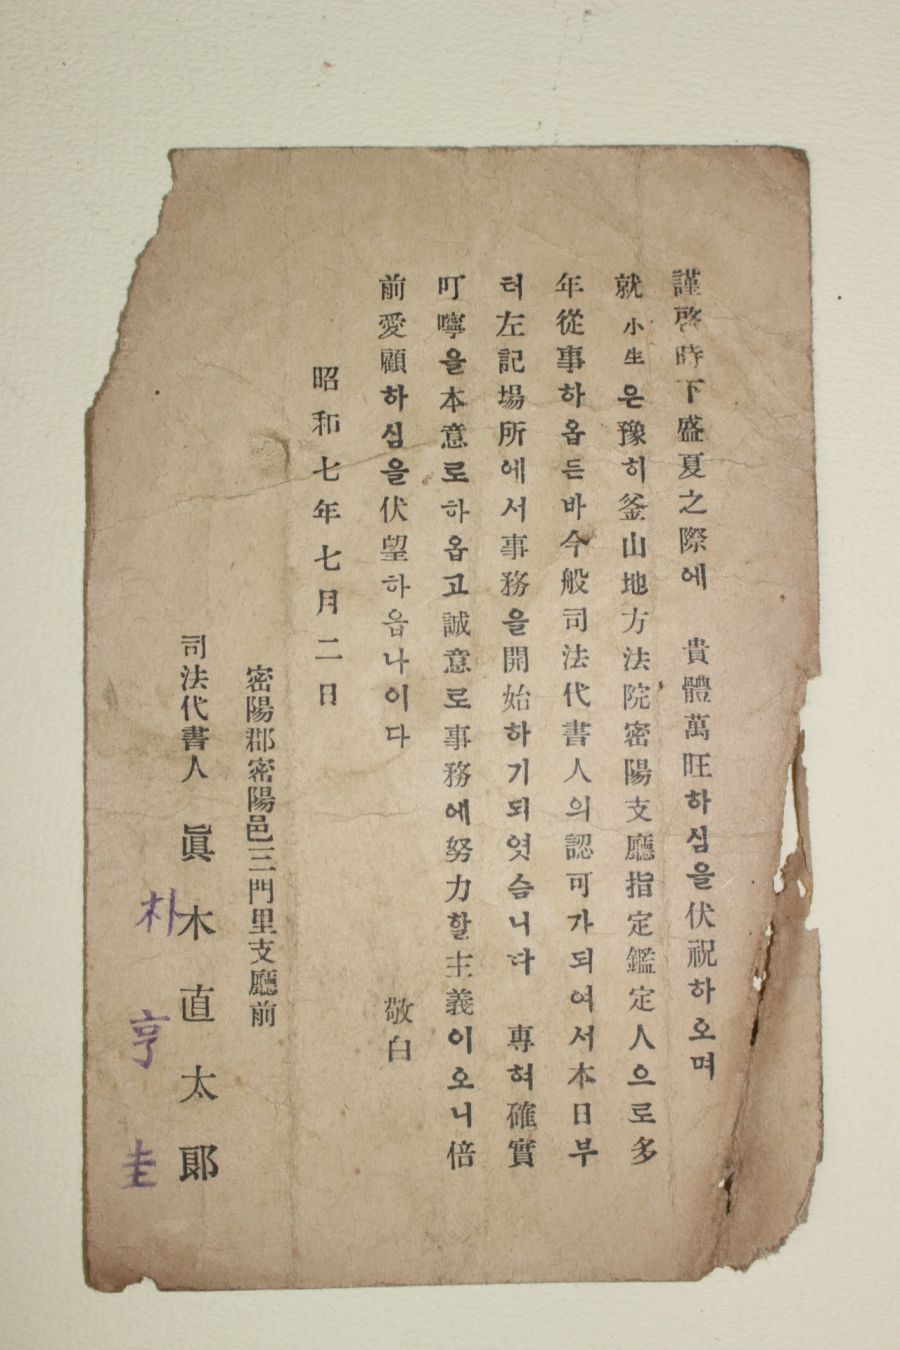 謹啓時下盛夏之際에 貴體萬旺하심을伏祝하오며
就小生은豫히釜山地方法院密陽支廳指定鑑定人으로多
年從事하옵든바今般司法代書人의認可가되여서本日부
터左記場所에서事務을開始하기되엿슴니다 專혀確實
叮嚀을本意로하옵고誠意로事務에努力할主義이오니倍
前愛顧하심을伏望하옵나이다 敬白
昭和七年七月二日
密陽郡密陽邑三門里支廳前
司法代書人 眞木直太郎
朴亨圭